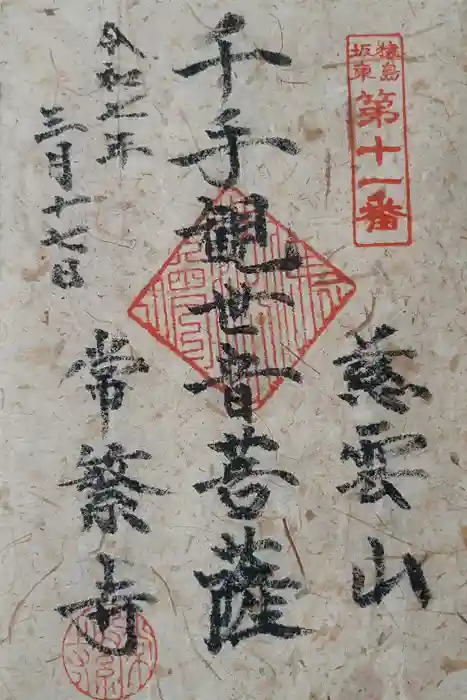 猿島
坂東
第十一番
慈雲山
千手観世音菩薩
令和二年
三月十七日
常繁寺